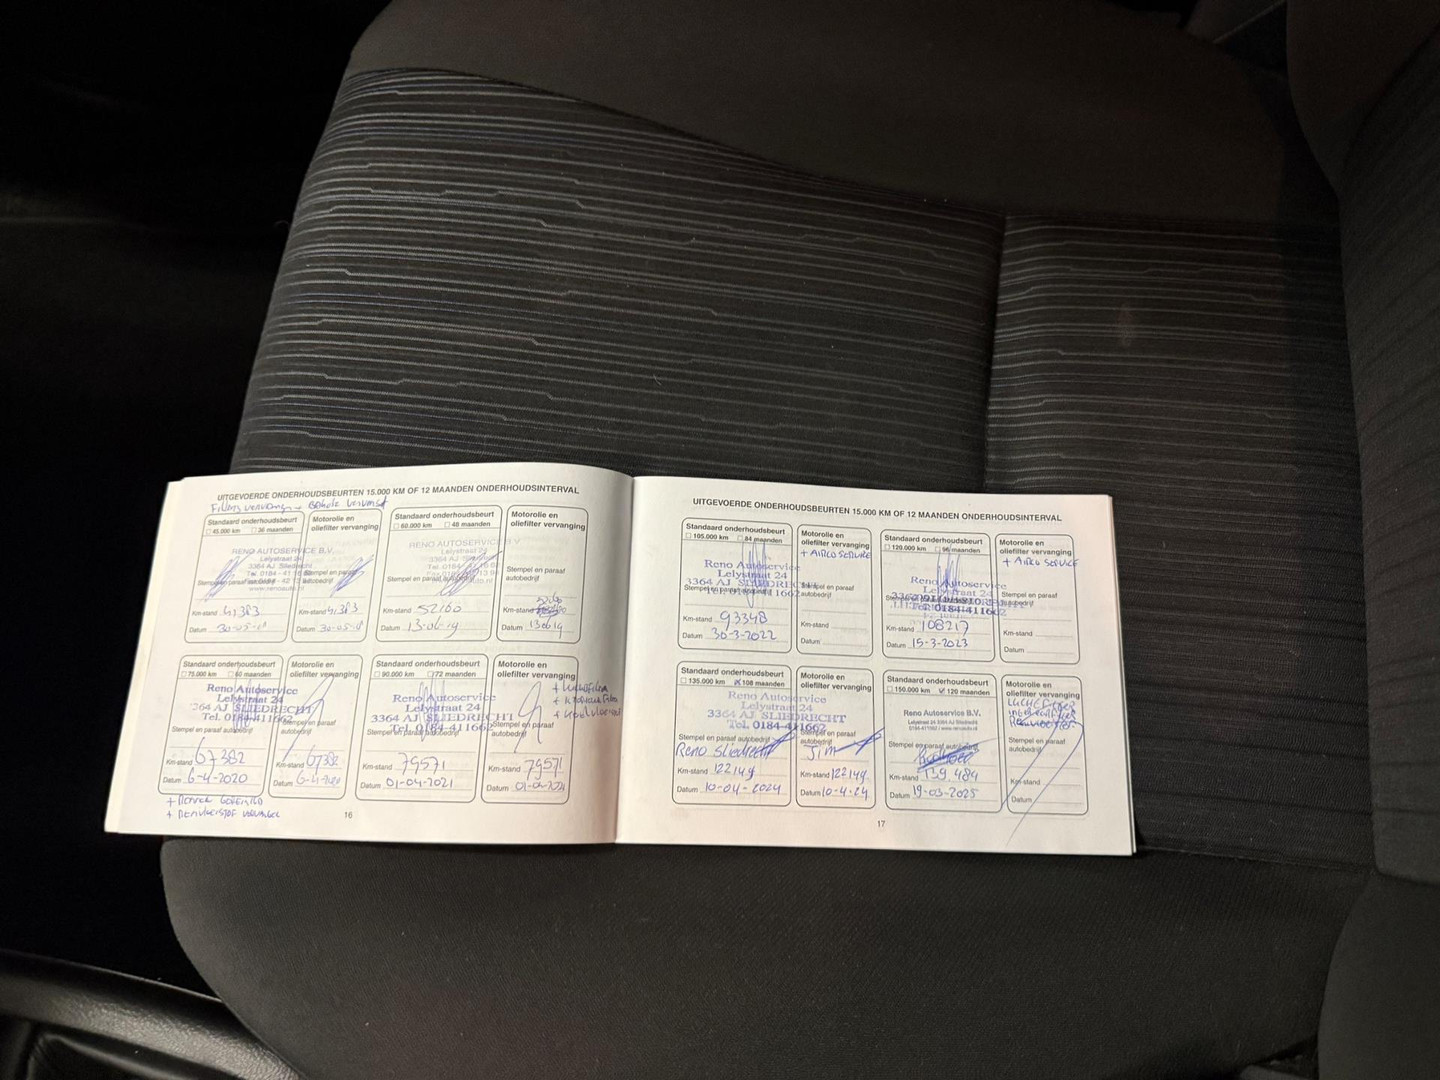 UITGEVOERDE ONDERHOUDSBEURTEN 15.000 KM OF 12 MAANDEN ONDERHOUDSINTERVAL
Filters vervangen
Standaard onderhoudsbeurt
45.000 km 36 maanden
RENO AUTOSERVICE B.V.
Lelystraat 24
Km-stand 41383
Datum
Motorolie en
oliefilter vervanging
Stempel en paraaf
Km-stand 41383
Datum
Standaard onderhoudsbeurt
60.000 km 48 maanden
RENO AUTOSERVICE B.V.
Lelystraat 24
3364 AJ
Stempel en paraaf
Km-stand 52160
Datum 13-06-19
Motorolie en
oliefilter vervanging
Stempel en paraaf
autobedrijf
Km-stand
Datum 130619
Standaard onderhoudsbeurt
75.000 km 60 maanden
Reno Autoservice
Lelystraat 24
3364 AJ SLIEDRECHT
Tel. 0184-411662
Stempel en paraaf
Km-stand 67382
Datum 6-4-2020
Motorolie en
oliefilter vervanging
Km-stand 67382
Datum 6-4-2020
+ remvloeistof
Standaard onderhoudsbeurt
90.000 km 72 maanden
Reno Autoservice
Lelystraat 24
3364 AJ SLIEDRECHT
Tel. 0184-411662
Stempel en paraaf autobedrijf
Km-stand 79571
Datum 01-04-2021
Motorolie en
oliefilter vervanging
Stempel en paraaf
autobedrijf
Km-stand 79571
Datum 01-04-2021
16
UITGEVOERDE ONDERHOUDSBEURTEN 15.000 KM OF 12 MAANDEN ONDERHOUDSINTERVAL
Standaard onderhoudsbeurt
105.000 km 84 maanden
Reno Autoservice
Lelystraat 24
3364 AJ SLIEDRECHT
Km-stand 93348
Datum 30-3-2022
Motorolie en
oliefilter vervanging
+ AIRCO SERVICE
Stempel en paraaf
autobedrijf
Km-stand
Datum
Standaard onderhoudsbeurt
120.000 km 96 maanden
Reno Autoservice
Lelystraat 24
Tel. 0184-411662
Km-stand 108217
Datum 15-3-2023
Motorolie en
oliefilter vervanging
+ AIRCO SERVICE
Stempel en paraaf
autobedrijf
Km-stand
Datum
Standaard onderhoudsbeurt
135.000 km 108 maanden
Reno Autoservice
Lelystraat 24
3364 AJ SLIEDRECHT
Tel. 0184-411662
Stempel en paraaf autobedrijf
Reno Sliedrecht
Km-stand 122149
Datum 10-04-2024
Motorolie en
oliefilter vervanging
Stempel en paraaf
autobedrijf
Jim
Km-stand 122149
Datum 10-4-24
Standaard onderhoudsbeurt
150.000 km 120 maanden
Reno Autoservice B.V.
Lelystraat 24 3364 AJ Sliedrecht
Stempel en paraaf autobedrijf
Km-stand 139 484
Datum 19-03-2025
Motorolie en
oliefilter vervanging
Stempel en paraaf
autobedrijf
Km-stand
Datum
17